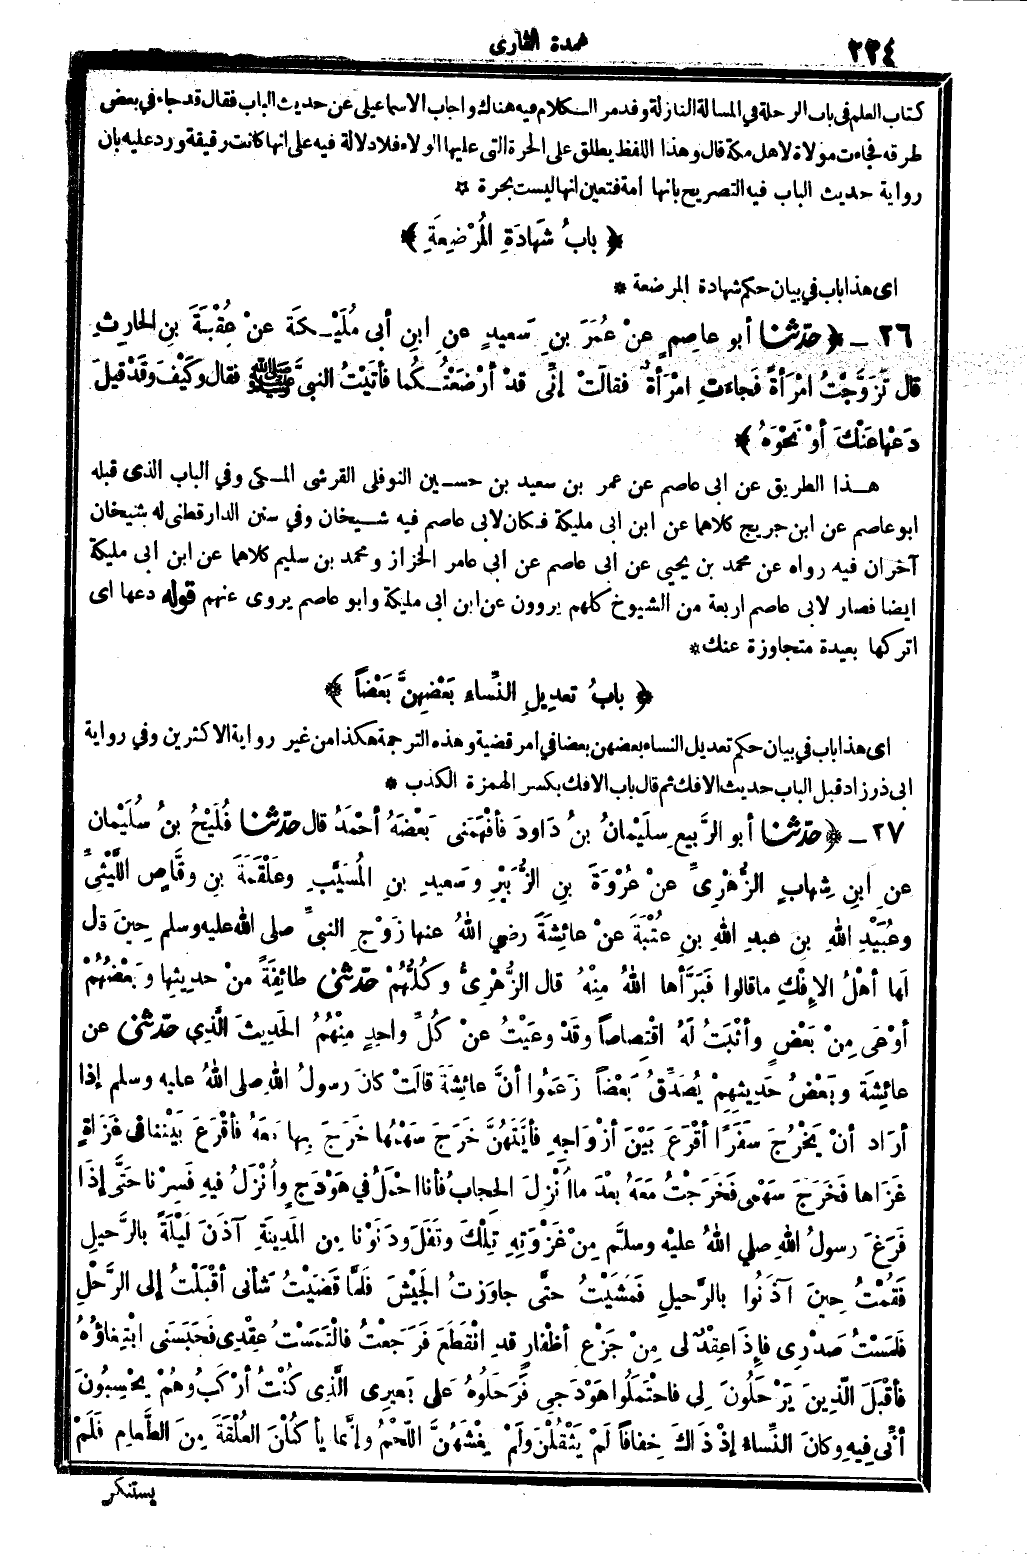 ٢٢٤
عمدة القارى
كتاب العلم فى باب الرحلة في المسالة النازلة وقد مر الكلام فيه هناك واجاب الاسماعيلى عن حديث الباب فقال قد جاء في بعض
طرقه فجاءت مولاة لاهل مكة قال وهذا اللفظ يطلق على الحرة التى عليها الولاء فلا دلالة فيه على انها كانت رقيقة ورد عليه بان
رواية حديث الباب فيه التصريح بانها امة فتعين انها ليست بحرة *
﴿ بابُ شَهَادَةِ المُرْضِعَةِ ﴾
اى هذا باب في بيان حكم شهادة المرضعة *
٢٦ ـ ﴿ حدّثنا أبو عاصِمٍ عنْ عُمَرَ بنِ سَعيدٍ عنِ ابنِ أبى مُلَيْكَةَ عنْ عُقْبَةَ بنِ الحارِثِ
قال تَزَوَّجْتُ امْرَأةً فَجاءتِ امْرَأةٌ فقالَتْ إنِّى قدْ أرْضَعْتُكُما فأتَيْتُ النبىَّ ﷺ فقال وكَيْفَ وقَدْ قيلَ
دَعْها عَنْكَ أوْ نَحْوَهُ ﴾
هذا الطريق عن ابى عاصم عن عمر بن سعيد بن حسين النوفلى القرشى المكى وفي الباب الذى قبله
ابو عاصم عن ابن جريج كلاهما عن ابن ابى مليكة فكان لابى عاصم فيه شيخان وفي سنن الدارقطنى له شيخان
آخران فيه رواه عن محمد بن يحيى عن ابى عاصم عن ابى عامر الخزاز ومحمد بن سليم كلاهما عن ابن ابى مليكة
ايضا فصار لابى عاصم اربعة من الشيوخ كلهم يروون عن ابن ابى مليكة وابو عاصم يروى عنهم قوله دعها اى
اتركها بعيدة متجاوزة عنك *
﴿ بابُ تعديلِ النِّساءِ بَعْضِهِنَّ بَعْضاً ﴾
اى هذا باب في بيان حكم تعديل النساء بعضهن بعضا في امر قضية وهذه الترجمة هكذا من غير رواية الاكثرين وفي رواية
ابى ذر زاد قبل الباب حديث الافك ثم قال باب الافك بكسر الهمزة الكذب *
٢٧ ـ ﴿ حدّثنا أبو الرَّبيعِ سليمانُ بنُ داودَ فأفْهَمَنى بَعْضَهُ أحْمَدُ قال حدّثنا فُلَيْحُ بنُ سُلَيْمان
عنِ ابنِ شِهابٍ الزُّهْرِىِّ عنْ عُرْوَةَ بنِ الزُّبَيْرِ وسَعيدِ بنِ المُسَيَّبِ وعَلْقَمَةَ بنِ وقَّاصٍ اللَّيْثِىِّ
وعُبَيْدِ اللهِ بنِ عبدِ اللهِ بنِ عُتْبَةَ عنْ عائِشَةَ رضي اللهُ عنها زَوْجِ النبىِّ صلى الله عليه وسلم حِينَ قال
لَها أهْلُ الإفْكِ ما قالوا فَبَرَّأها اللهُ مِنْهُ قال الزُّهْرِىُّ وكُلُّهُمْ حدّثنى طائِفَةً منْ حديثِها وبَعْضُهُمْ
أوْعَى مِنْ بَعْضٍ وأثْبَتُ لَهُ اقْتِصاصاً وقَدْ وعَيْتُ عنْ كُلِّ واحِدٍ مِنْهُمُ الحَدِيثَ الَّذِي حدّثنى عن
عائِشَةَ وبَعْضُ حديثِهِمْ يُصَدِّقُ بَعْضاً زَعَمُوا أنَّ عائِشَةَ قالَتْ كانَ رسولُ اللهِ صلى اللهُ عليه وسلم إذا
أرادَ أنْ يَخْرُجَ سَفَرًا أقْرَعَ بَيْنَ أزْواجِهِ فأيَّتُهُنَّ خَرَجَ سَهْمُها خَرَجَ بِها مَعَهُ فأقْرَعَ بَيْنَنا فى غَزَاةٍ
غَزَاها فَخَرَجَ سَهْمِى فَخَرَجْتُ مَعَهُ بعْدَ ما أُنْزِلَ الحِجابُ فأنا احْمَلُ في هَوْدَجٍ وأُنْزَلُ فيهِ فَسِرْنا حَتَّى إذَا
فَرَغَ رسولُ اللهِ صلي اللهُ عليْهِ وسلَّم مِنْ غَزْوَتِهِ تِلْكَ وقَفَلَ ودَنَوْنا مِن المَدِينَةِ آذَنَ لَيْلَةً بالرَّحيلِ
فَقُمْتُ حِينَ آذَنُوا بالرَّحيلِ فَمَشَيْتُ حتَّى جاوَزتُ الجَيْشَ فَلَمَّا قَضَيْتُ شَأنى أقْبَلْتُ إلى الرَّحْلِ
فَلَمَسْتُ صَدْرِى فإذَا عِقْدٌ لى مِنْ جَزْعِ أظْفارٍ قدِ انْقَطَعَ فَرَجَعْتُ فالْتَمَسْتُ عِقْدِى فَحَبَسَنى ابْتِغاؤُهُ
فأقْبَلَ الَّذِينَ يَرْحَلُونَ لِى فاحْتَمَلُوا هَوْدَجِى فَرَحَلُوهُ عَلَى بَعِيرِى الَّذِى كُنْتُ أرْكَبُ وهُمْ يَحْسِبُونَ
أنِّى فِيهِ وكانَ النِّساءُ إذْ ذَاكَ خِفافاً لَمْ يَثْقُلْنَ ولَمْ يَغْشَهُنَّ اللَّحْمُ وإنَّما يأكُلْنَ العُلْقَةَ مِنَ الطَّعامِ فَلَمْ
يستنكر